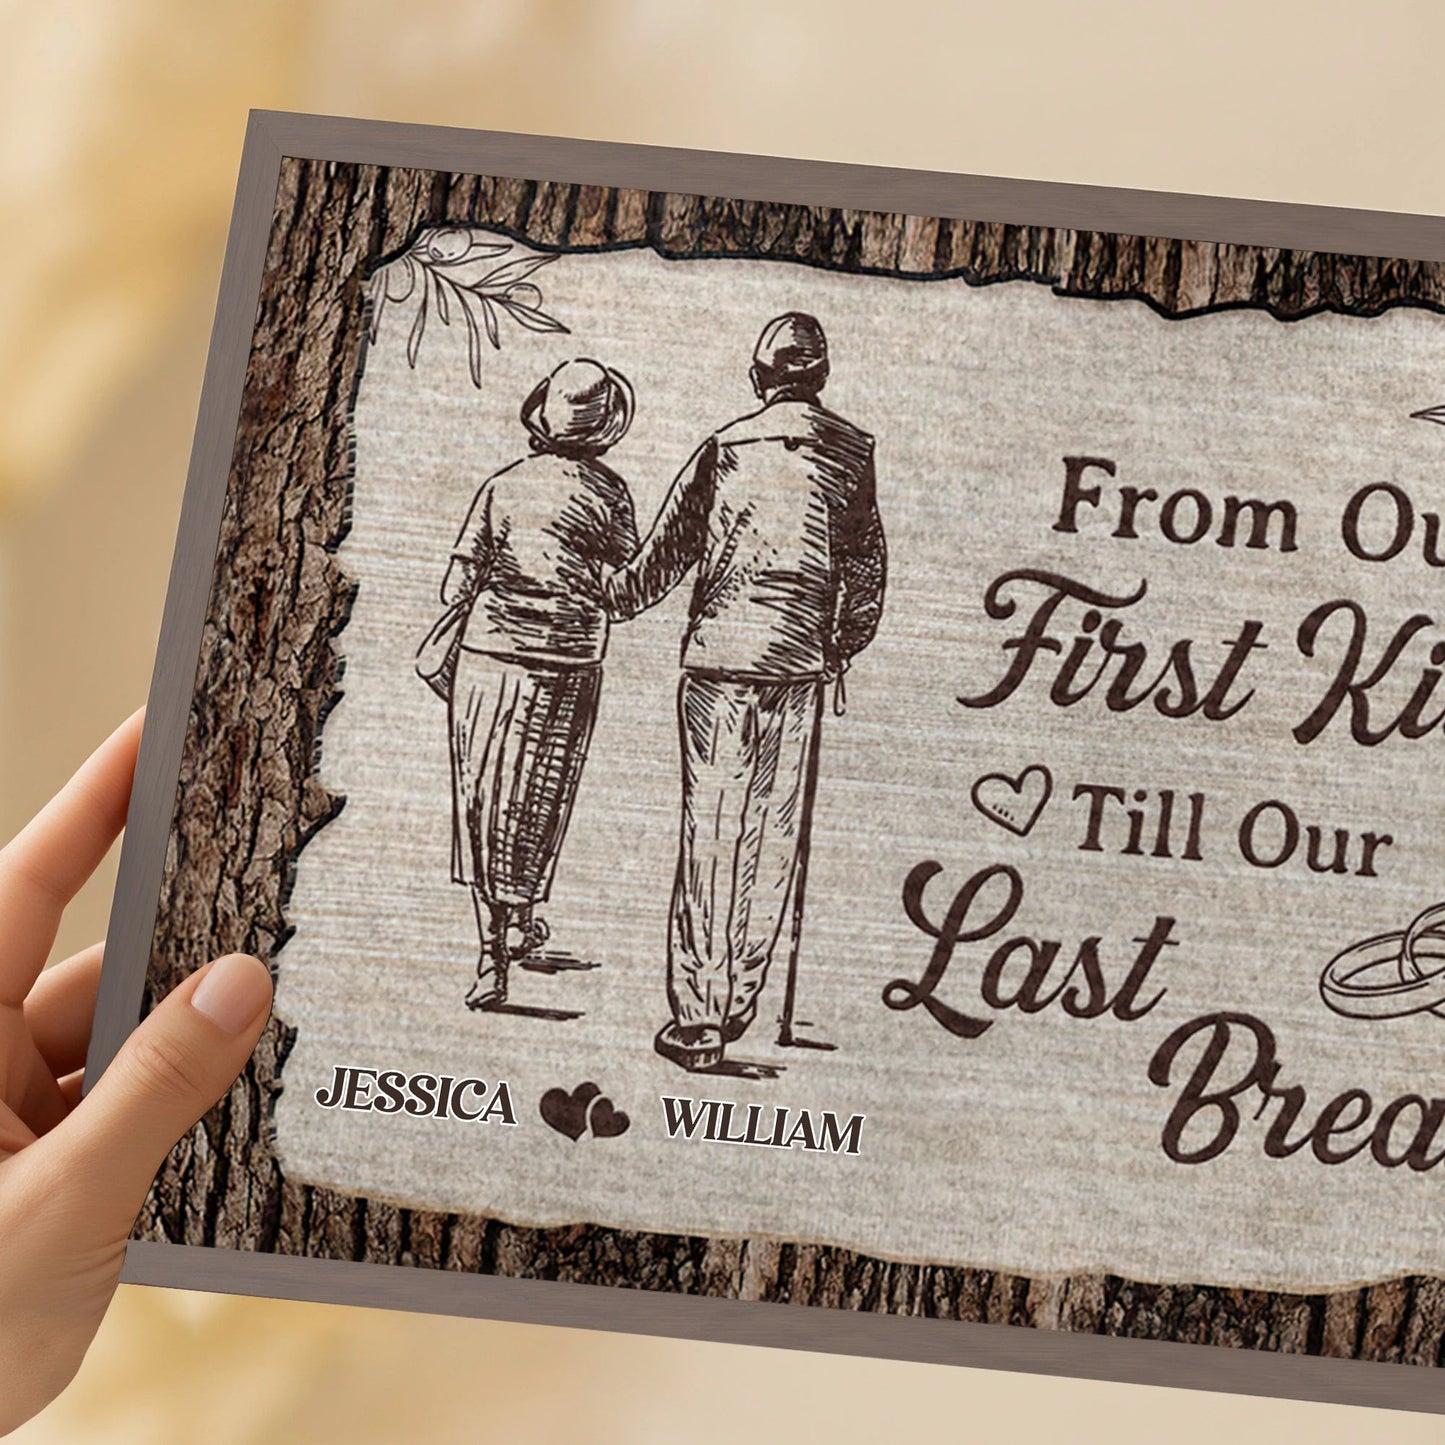 From Ou
First Ki
Till Our
Last
Brea
JESSICA WILLIAM